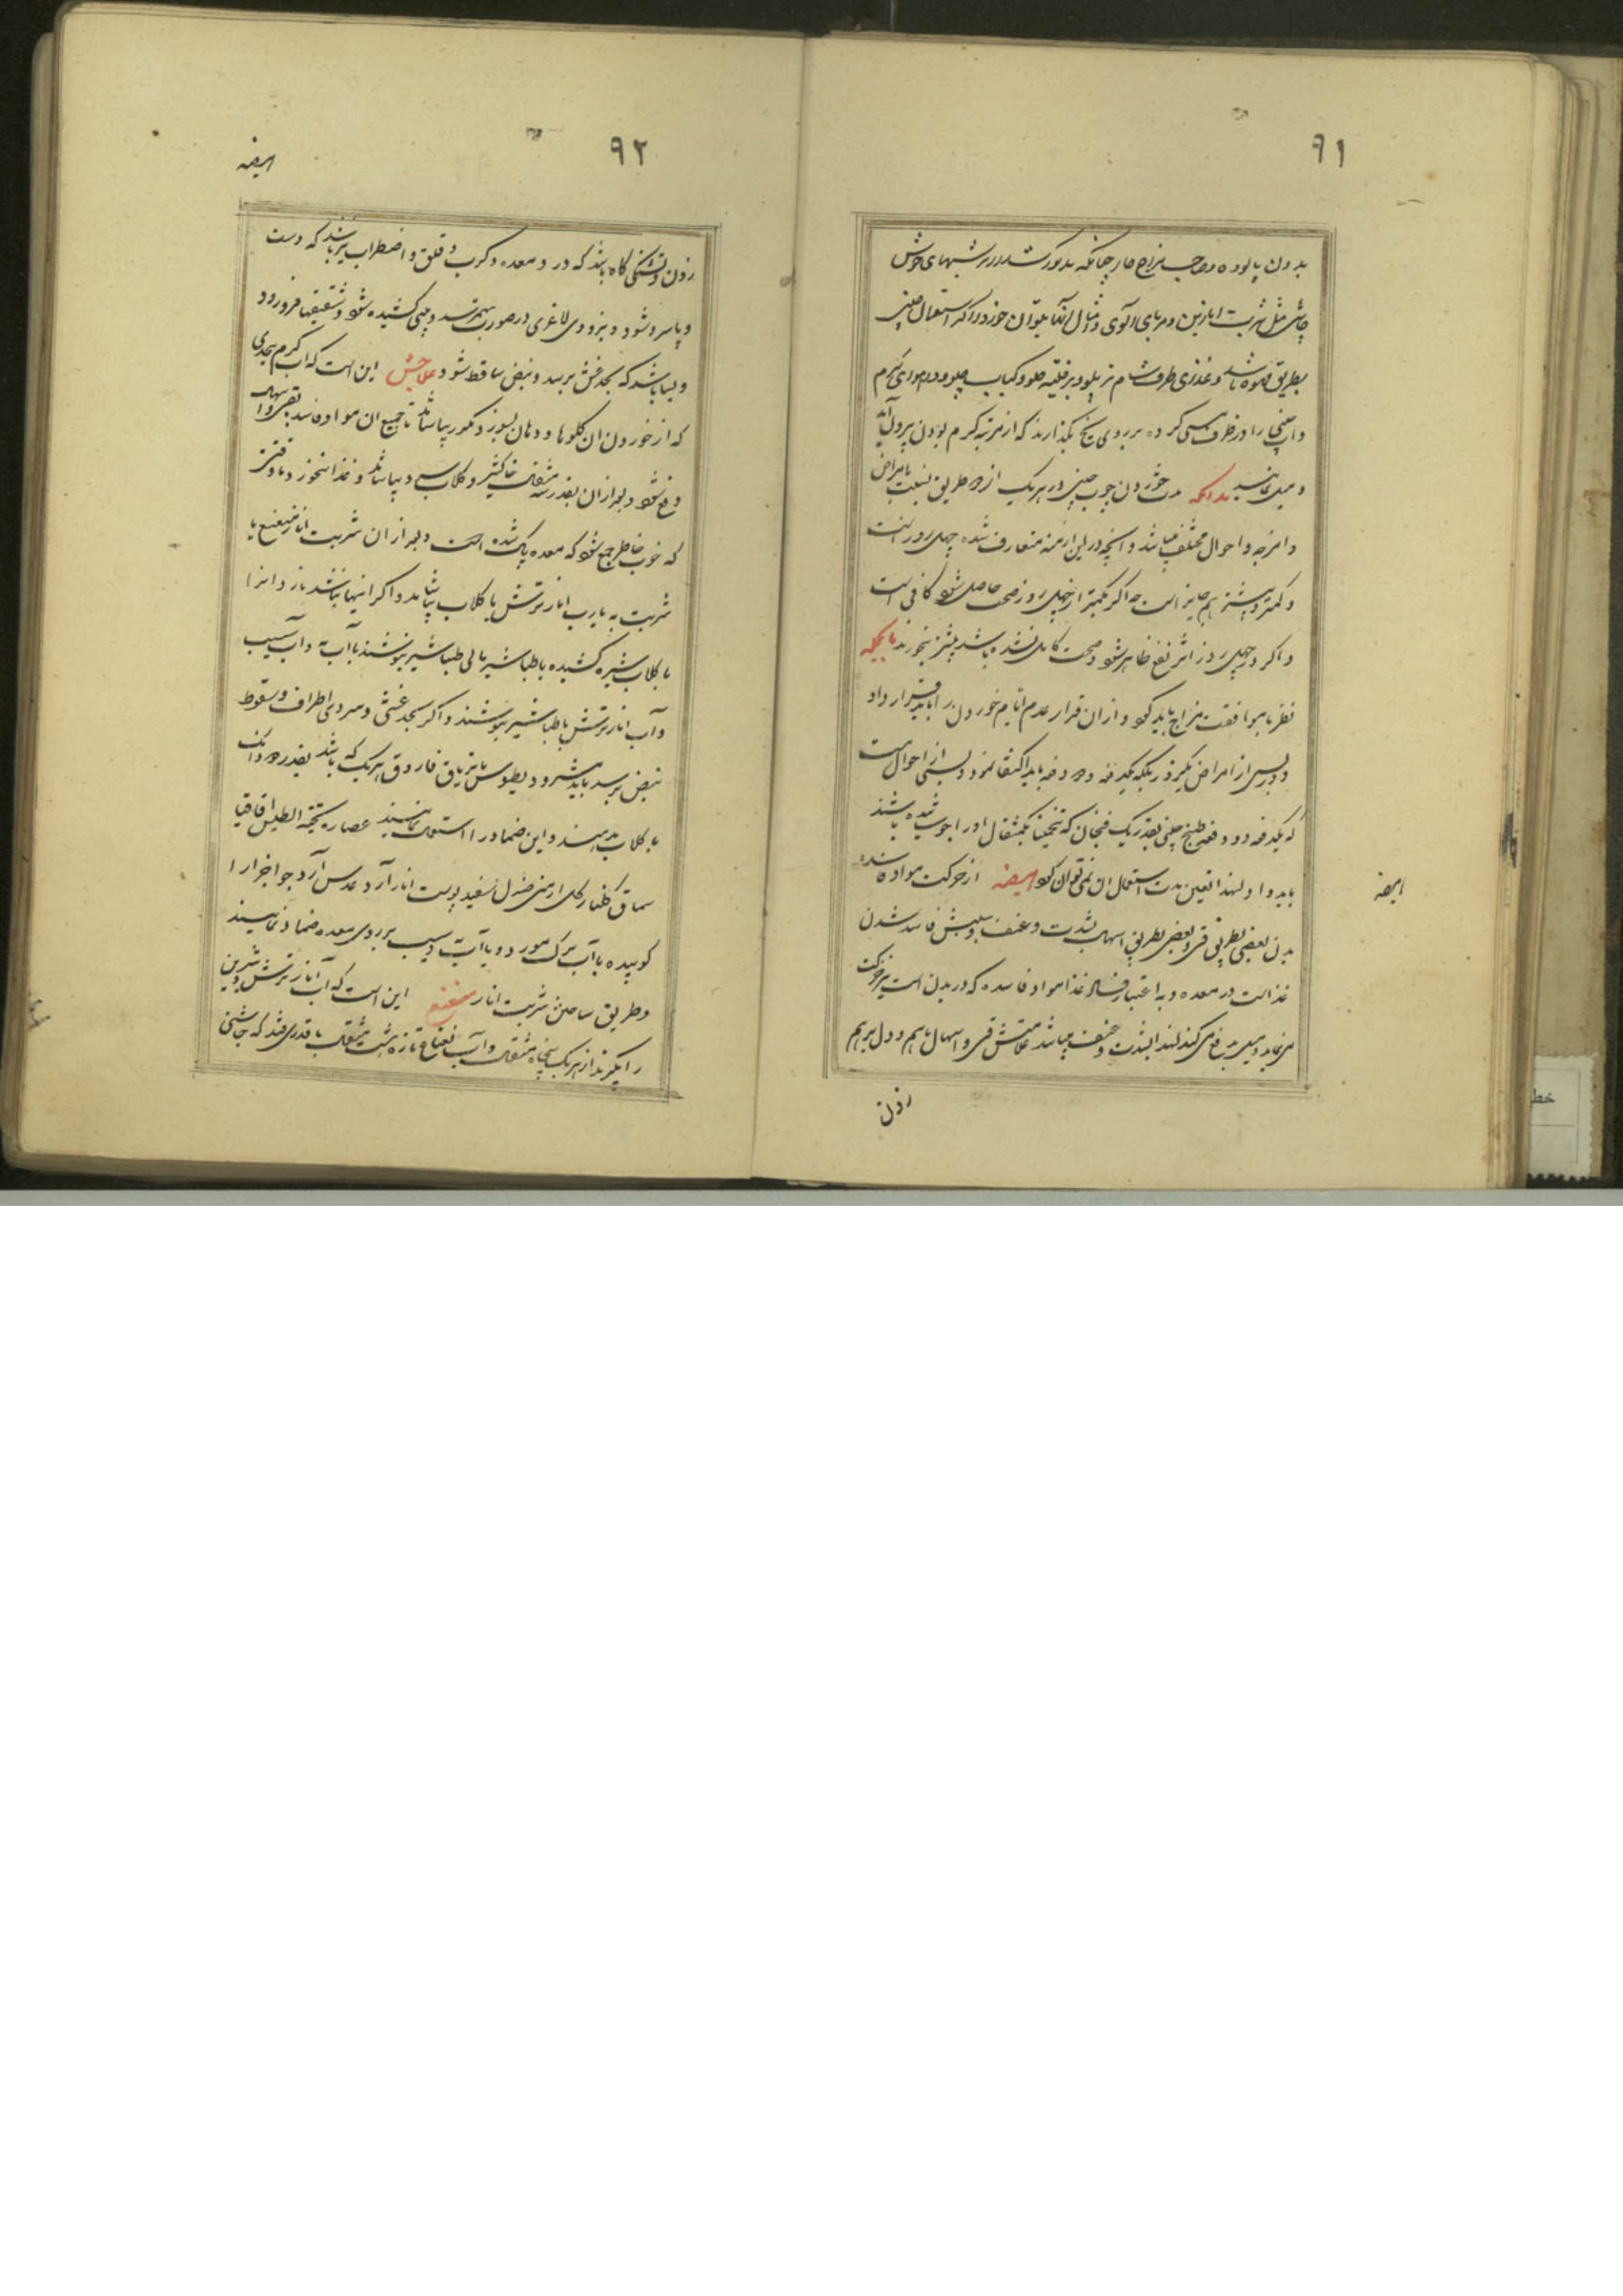 ٩١
بدون پالوده وصاحب مزاج حار چنانکه مذکور شد در ترشیهای خوش
چاشنی مثل شربت انارین و مربای آلوی و امثال آنها میتوان خورد و اگر استعمال چینی
بطریق قهوه باشد و غذای طرف شام نیز پلو و برقلیه چلو و کباب چلو و در هوای گرم
و آب چینی را در ظرف مسی کرده بر روی یخ بگذارند که از مرتبه گرم بودن بیرون آید
و میل نمایند بدانکه مدت خوردن چوب چینی در هر یک از دو طریق نسبت بامراض
و امزجه و احوال مختلف میباشد و آنچه در این ازمنه متعارف شده چهل روز است
و کمتر و بیشتر هم جایز است چه اگر بکمتر از چهل روز صحت حاصل شود کافی است
و اگر در چهل روز اثر نفع ظاهر شود و صحت کامل نشده باشد بیشتر بخورند بالجمله
نظر بموافقت مزاج باید کرد و از آن قرار عدم ایام خوردن را باید قرار داد
و در بسی از امراض یکروز بلکه یکدفعه و دو دفعه باید اکتفا نمود و بسی از احوال است
که یکدفعه دو دفعه طبیخ چینی بقدر یک فنجان که تخمینا یکمثقال او را جوب شده باشند
باید داد و لهذا تعیین مدت استعمال آن نمی توان کرد هیضه از حرکت مواد فاسده
هیضه
بدن بعضی بطریق قی و بعضی بطریق اسهال بشدت و عنف و سببش فاسد شدن
غذاست در معده و به اعتبار فساد غذا مواد فاسده که در بدن است نیز حرکت
می نماید و میل بدفع می کند لهذا بشدت و عنف میباشد علامتش قی و اسهال باهم و دل برهم
زدن
٩٢
هیضه
زدن و تشنگی گاه باشد که درد معده و کرب و قلق و اضطراب نیز باشد که دست
و پا سرد شود و بزودی لاغری در صورت بهمرسد و بینی کشیده شود و شقیقها فرو رود
و بسا باشد که بحد غش برسد و نبض ساقط شود علاجش این است که آب گرم بحدی
که از خوردن آن گلوها و دهان بسوزد مکرر بیاشامند تا جمیع آن مواد فاسد بقی و اسهال
دفع شود و بعد از آن بقدر سه مثقال خاکشیر و گلاب سرد بیاشامند و غذا نخورد تا وقتی
که خوب خاطر جمع شود که معده پاک شده است و بعد از آن شربت انار منعنع یا
شربت به یا رب انار ترش با گلاب بیاشامد و اگر اینها نباشد ناردانرا
با گلاب شیره کشیده با طباشیر یا بی طباشیر بنوشند یا آب به و آب سیب
و آب انار ترش با طباشیر بنوشند و اگر بحد غشی و سردی اطراف و سقوط
نبض برسد باید مثرودیطوس یا تریاق فاروق هر یک که باشد بقدر دو دانک
با گلاب بدهند و این ضماد را استعمال نمایند عصاره لحیة التیس اقاقیا
سماق گلنار گل ارمنی صندل سفید پوست انار آرد عدس آرد جو اجزا را
کوبیده با آب برگ مورد و یا آب به و سیب بر روی معده ضماد نمایند
و طریق ساختن شربت انار منعنع این است که آب انار ترش و شیرین
را بگیرند از هر یک پنجاه مثقال و آب نعناع تازه شصت مثقال با قدری قند که چاشنی